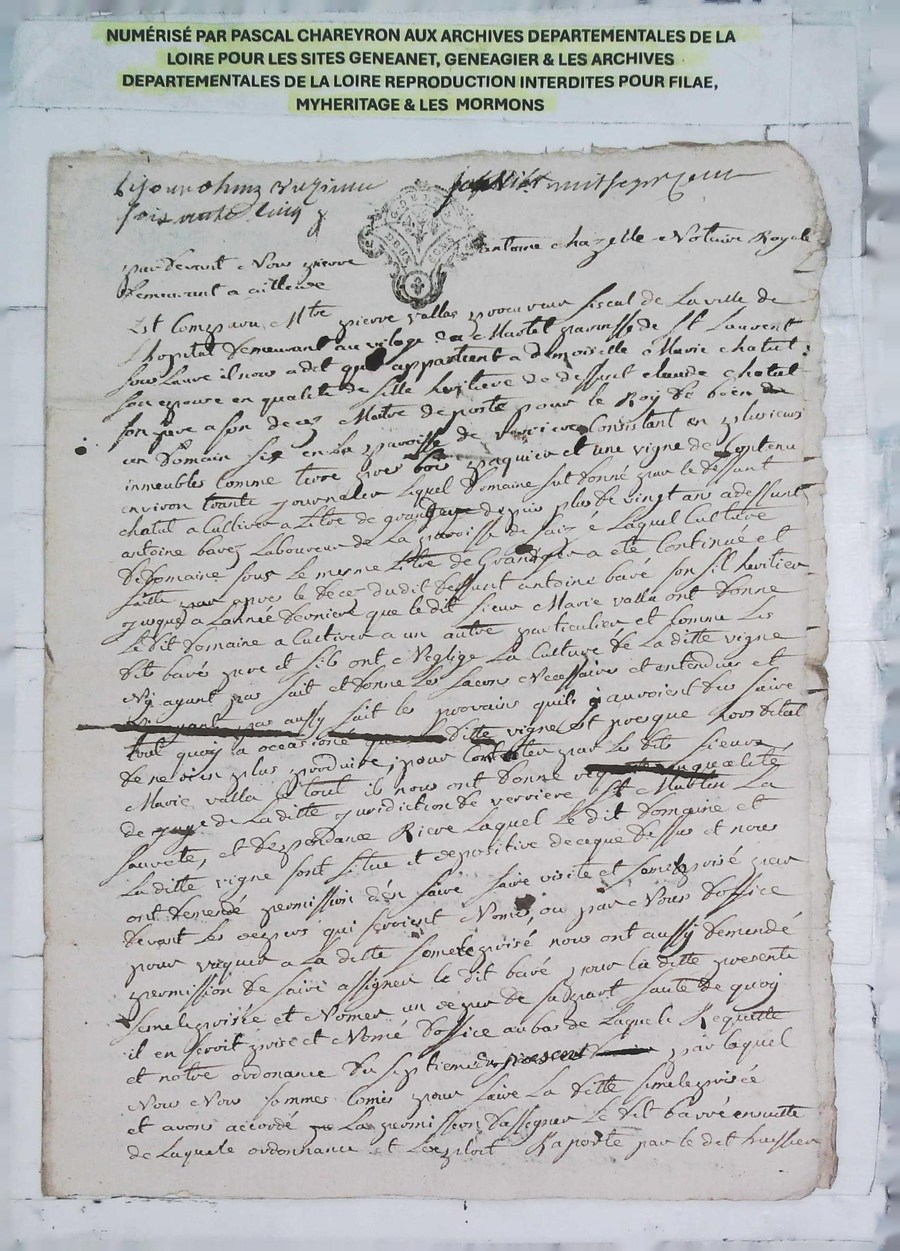 NUMÉRISÉ PAR PASCAL CHAREYRON AUX ARCHIVES DEPARTEMENTALES DE LA
LOIRE POUR LES SITES GENEANET, GENEAGIER & LES ARCHIVES
DEPARTEMENTALES DE LA LOIRE REPRODUCTION INTERDITES POUR FILAE,
MYHERITAGE & LES MORMONS
janvier mil sept cent
soixante cinq
par devant Nous pierre antoine chazelle Notaire Royale
demeurant a
Est comparu Mtre pierre vallas procureur fiscal de La ville de
L'hopital demeurant au vilage de parroisse de St Laurent
sous il nous a dit que appartient a demoiselle Marie chatul
son epouse en qualité de fille heritiere de deffunt claude chatul
son pere a son deces Maitre de poste pour le Roy de boën
un Domain size en La paroisse de verriere Consistant en plusieurs
inmeubles comme terre prés bois paquier et une vigne de Contenu
environ trante journalier Lequel Domaine fut donné par le deffunt
chatul a Cultiver a titre de depuis plus de vingt ans a deffunt
antoine Laboureur de La paroisse de Laquel Culture
de Domaine sous Le meme titre de a eté Continué et
faitte par apres le deces dudit deffunt antoine bavé son fil heritier
jusques a Lannée Derniere que le dit sieur Marie valla ont donne
Le dit domaine a Cultiver a un autre particulier et comme Les
dits bavés pere et fils ont Neglige La Culture de La ditte vigne
N'y ayant pas fait et donne Les facons Necessaires et entendues et
fait les provains quils auroient du faire
tout quoy a occasioné ditte vigne est presque hors detat
de ne rien plus produire, pour par Les dits sieurs
Marie valla Le tout il nous ont donne qualité
de juge de La ditte juridiction de verriere St La
sauveté, et Despendance Riere Laquel Le dit domaine et
La ditte vigne sont situe et et nous
ont demandé permission den faire faire visite et par
devant Les expers qui seroient Nomé, ou par Nous Doffice
pour vaquer a La ditte nous ont aussy demandé
permission de faire assigner le dit bavé pour la ditte presente
et Nomer un expert de sa part faute de quoy
il en seroit pris et Nomé Doffice au bas de Laquele Requette
et notre ordonance du septieme du present par laquel
Nous Nous sommes Comis pour faire La ditte
et avons accordé La permission Dassigner Le dit barvé ensuitte
de Laquele ordonnance et Lexploit Raporte par le dit huissier